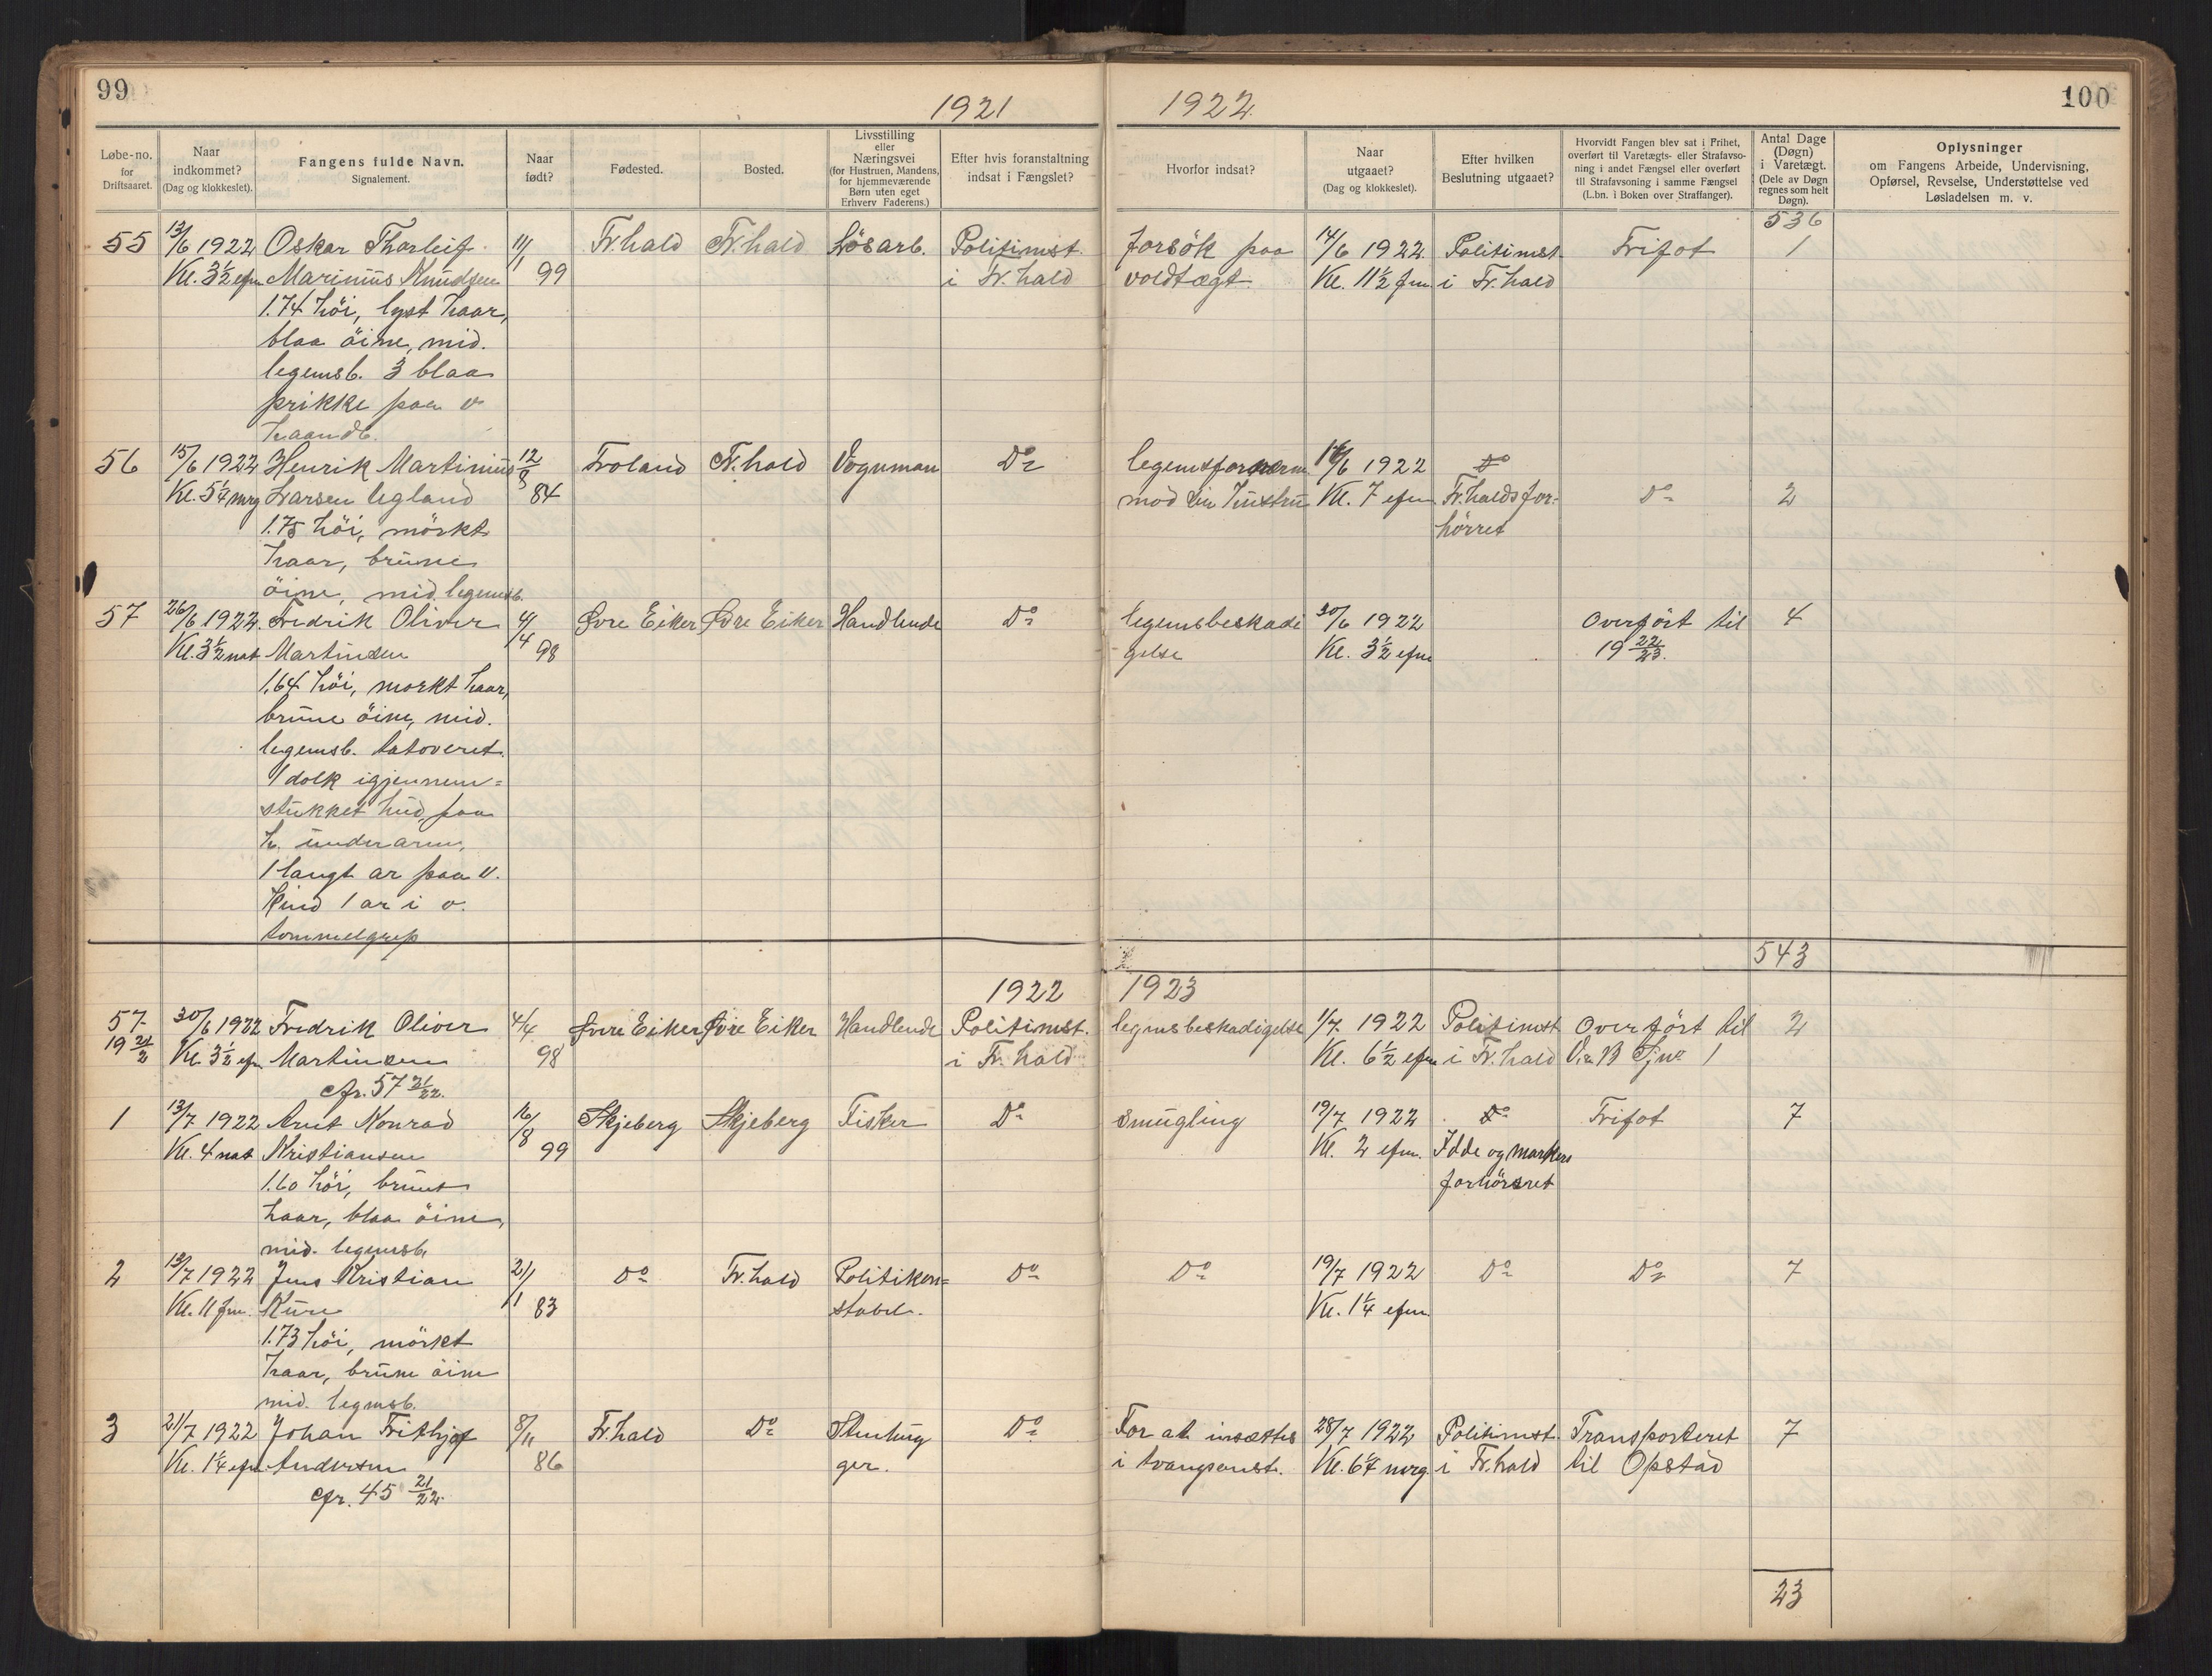 99
1921
1922
100
Løbe-no. for Driftsaaret.
Naar indkommet? (Dag og klokkeslet).
Fangens fulde Navn. Signalement.
Naar født?
Fødested.
Bosted.
Livsstilling eller Næringsvei (for Hustruen, Mandens, for hjemmeværende Børn uten eget Erhverv Faderens.)
Efter hvis foranstaltning indsat i Fængslet?
Hvorfor indsat?
Naar utgaaet? (Dag og klokkeslet).
Efter hvilken Beslutning utgaaet?
Hvorvidt Fangen blev sat i Frihet, overført til Varetægts- eller Strafavsoning i andet Fængsel eller overført til Strafavsoning i samme Fængsel (L.bn. i Boken over Straffanger).
Antal Dage (Døgn) i Varetægt. (Dele av Døgn regnes som helt Døgn).
Oplysninger om Fangens Arbeide, Undervisning, Opførsel, Revselse, Understøttelse ved Løsladelsen m. v.
536
55 13/6 1922 Oskar Thorleif 11/1 Fr.hald Fr.hald Lösarb. Politimst. forsök paa 14/6 1922. Politimst. Frifot 1
Kl. 3½ efm Marinius Knudsen 99 i Fr.hald voldtægt Kl. 11½ fm i Fr.hald
1.74 höi, lyst haar,
blaa öine, mid.
legemsb. 3 blaa
prikke paa v
haandb.
56 15/6 1922 Henrik Martinius 12/8 Froland Fr.hald Vognman Do legemsfornærm. 16/6 1922 Do
Kl. 5¼ mrg Larsen Ugland 84 mod sin hustru Kl. 7 efm Fr.halds for- Do 2
1.75 höi, mörkt hörret
haar, brune
öine, mid. legemsb.
57 26/6 1922. Fredrik Oliver 4/4 Øvre Eiker Øvre Eiker Handlende Do legemsbeskadi 30/6 1922 Overfört til 4
Kl. 3½ nat Martinsen 98 gelse Kl. 3½ efm 19 22/23.
1.64 höi, morkt haar,
brune öine, mid.
legemsb. tatoveret.
1 dolk igjennem=
stukket hud, paa
h. underarm,
1 langt ar paa v.
Kind 1 ar i v.
tommelgrep
543
1922 1923
57 30/6 1922 Fredrik Oliver 4/4 Øvre Eiker Øvre Eiker Handlende Politimst. legmsbeskadigelse 1/7 1922 Politimst Overfört til 2
19 21/2 Kl. 3½ ef. Martinsen 98 i Fr.hald Kl. 6½ efm i Fr.hald 1
cfr. 57 21/22.
1 13/7 1922 Arnt Konrad 16/8 Skjeberg Skjeberg Fisker Do Smugling 19/7 1922 Do Frifot 7
Kl. 4 nat Kristiansen 99 Kl. 2 efm. Idde og Markers
1.60 höi, brunt forhörsret
haar, blaa öine,
mid. legemsb.
2 13/7 1922 Jens Kristian 21/1 Do Fr.hald Politikon= Do Do 19/7 1922 Do Do 7
Kl. 11 fm. Kure 83 stabel. Kl. 1¼ efm
1.73 höi, mörkt
haar, brune öine
mid. legmsb.
3 21/7 1922 Johan Frithjof 8/11 Fr.hald Do Stenhug Do For at insættes 28/7 1922 Politimst. Transporteret 7
Kl. 1¼ efm Andersen 86 ger. i tvangsanst. Kl. 6¼ morg i Fr.hald til Opstad
cfr. 45 21/22.
23